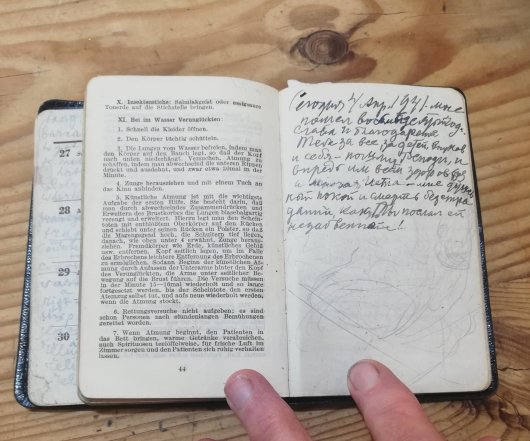 X. Insektenstiche: Salmiakgeist oder essigsaure
Tonerde auf die Stichstelle bringen.
XI. Bei im Wasser Verunglückten:
1. Schnell die Kleider öffnen.
2. Den Körper tüchtig schütteln.
3. Die Lungen vom Wasser befreien, indem man
den Körper auf den Bauch legt, so daß der Kopf
nach unten niederhängt. Versuchen, Atmung zu
schaffen, indem man abwechselnd die unteren Rippen
drückt und ausdehnt, und zwar etwa 20mal in der
Minute.
4. Zunge herausziehen und mit einem Tuch an
das Kinn anbinden.
5. Künstliche Atmung ist mit die wichtigste
Aufgabe der ersten Hilfe. Sie besteht darin, daß
man durch abwechselndes Zusammendrücken und
Erweitern des Brustkorbes die Lungen blasebalgartig
verengt und erweitert. Hierzu legt man den Schein-
toten mit entblößtem Oberkörper auf den Rücken
und schiebt unter seinen Rücken ein Polster, so daß
die Magengegend hoch, die Schultern tief liegen,
danach, wie oben unter 4 erwähnt, Zunge heraus-
ziehen. Fremdkörper wie Erde, künstliches Gebiß
usw. entfernen. Kopf seitlich legen, um im Falle
des Erbrechens leichtere Entfernung des Erbrochenen
zu ermöglichen. Sodann Beginn der künstlichen At-
mung durch Anfassen der Unterarme hinter den Kopf
des Verunglückten, die Arme unter seitlicher Be-
wegung auf die Brust führen. Die Versuche müssen
in der Minute 15—16mal wiederholt und so lange
fortgesetzt werden, bis der Scheintote den ersten
Atemzug selbst tut, und aufs neue wiederholt werden,
wenn die Atmung stockt.
6. Rettungsversuche nicht aufgeben: es sind
schon Personen nach stundenlangen Bemühungen
gerettet worden.
7. Wenn Atmung beginnt, den Patienten in
das Bett bringen, warme Getränke verabreichen,
auch Spirituosen teelöffelweise, für frische Luft im
Zimmer sorgen und den Patienten sich ruhig verhalten
lassen.
44
27
28
29
30
Сегодня 4 Апр. 1941. мне
пошел
Слава и благодарение
Тебе за все за детей, внуков
и себя - Господи, и
впредь им всем здоровья
и мне
покой и смерть без стра-
даний, как Ты послал ей
незабвенной!